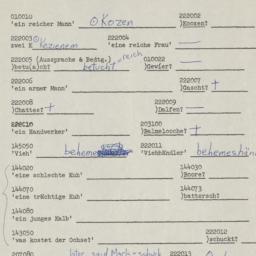 010010 222002
'ein reicher Mann' Okozen )Kozen?
222003 222004
zwei K ozienem 'eine reiche Frau'
222005 (Aussprache & Bedtg.) reich 010022
)betu(a)cht? betucht )Gewier? —
222006 222007
'ein armer Mann' )Gascht? +
222008 222009
)Chattes? + )Dalfen? —
222010 203100
'ein Handwerker' )Balmelooche? +
145050 222011
'Vieh' beheme 'Viehhändler' behemeshän
144020 144030
'eine schlechte Kuh' )Boore?
144070 144073
'eine trächtige Kuh' )battersch?
144080
'ein junges Kalb'
143050 222012
'was kostet der Ochse?' )schuckt?
207080 222013